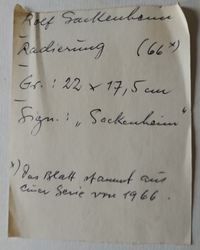 Rolf Sackenheim
Radierung (66 x)
Gr.: 22 x 17,5 cm
Sign.: „Sackenheim"
x) Das Blatt stammt aus
einer Serie von 1966.